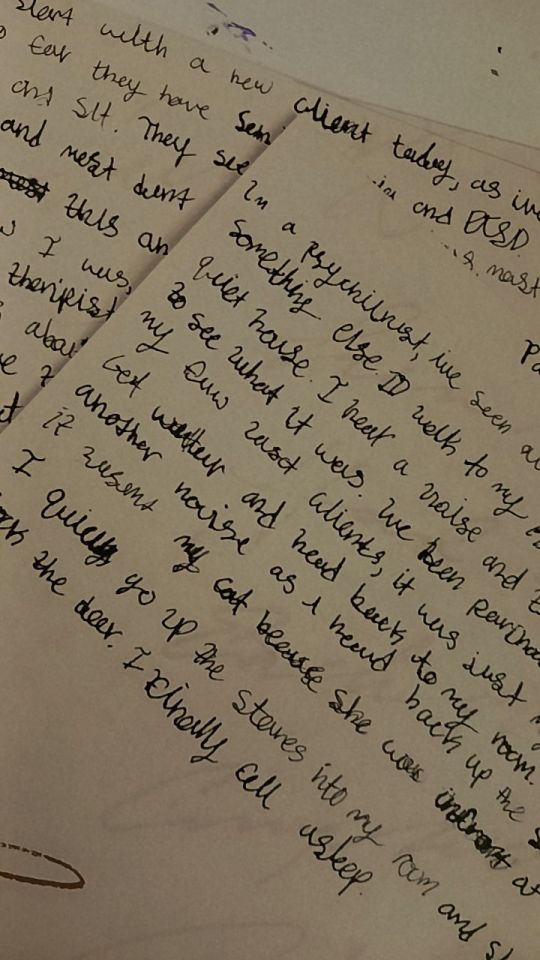 start with a new
far they have seen
and SH. They see
and nest dunt
this an
I was,
theripist
abou
client today, as ive
in and PTSD
mast
In a psychilugist, ive seen al
something else I) walk to my
quiet house. I hear a noise and I
to see what it was. Ive been paranoi
my few last clients, it was just my
Get watter and head back to my room.
another noise as I head back up the s
it wasent my cat because she was infront at
I quickly go up the staires into my room and sh
the door. I finally fall asleep.